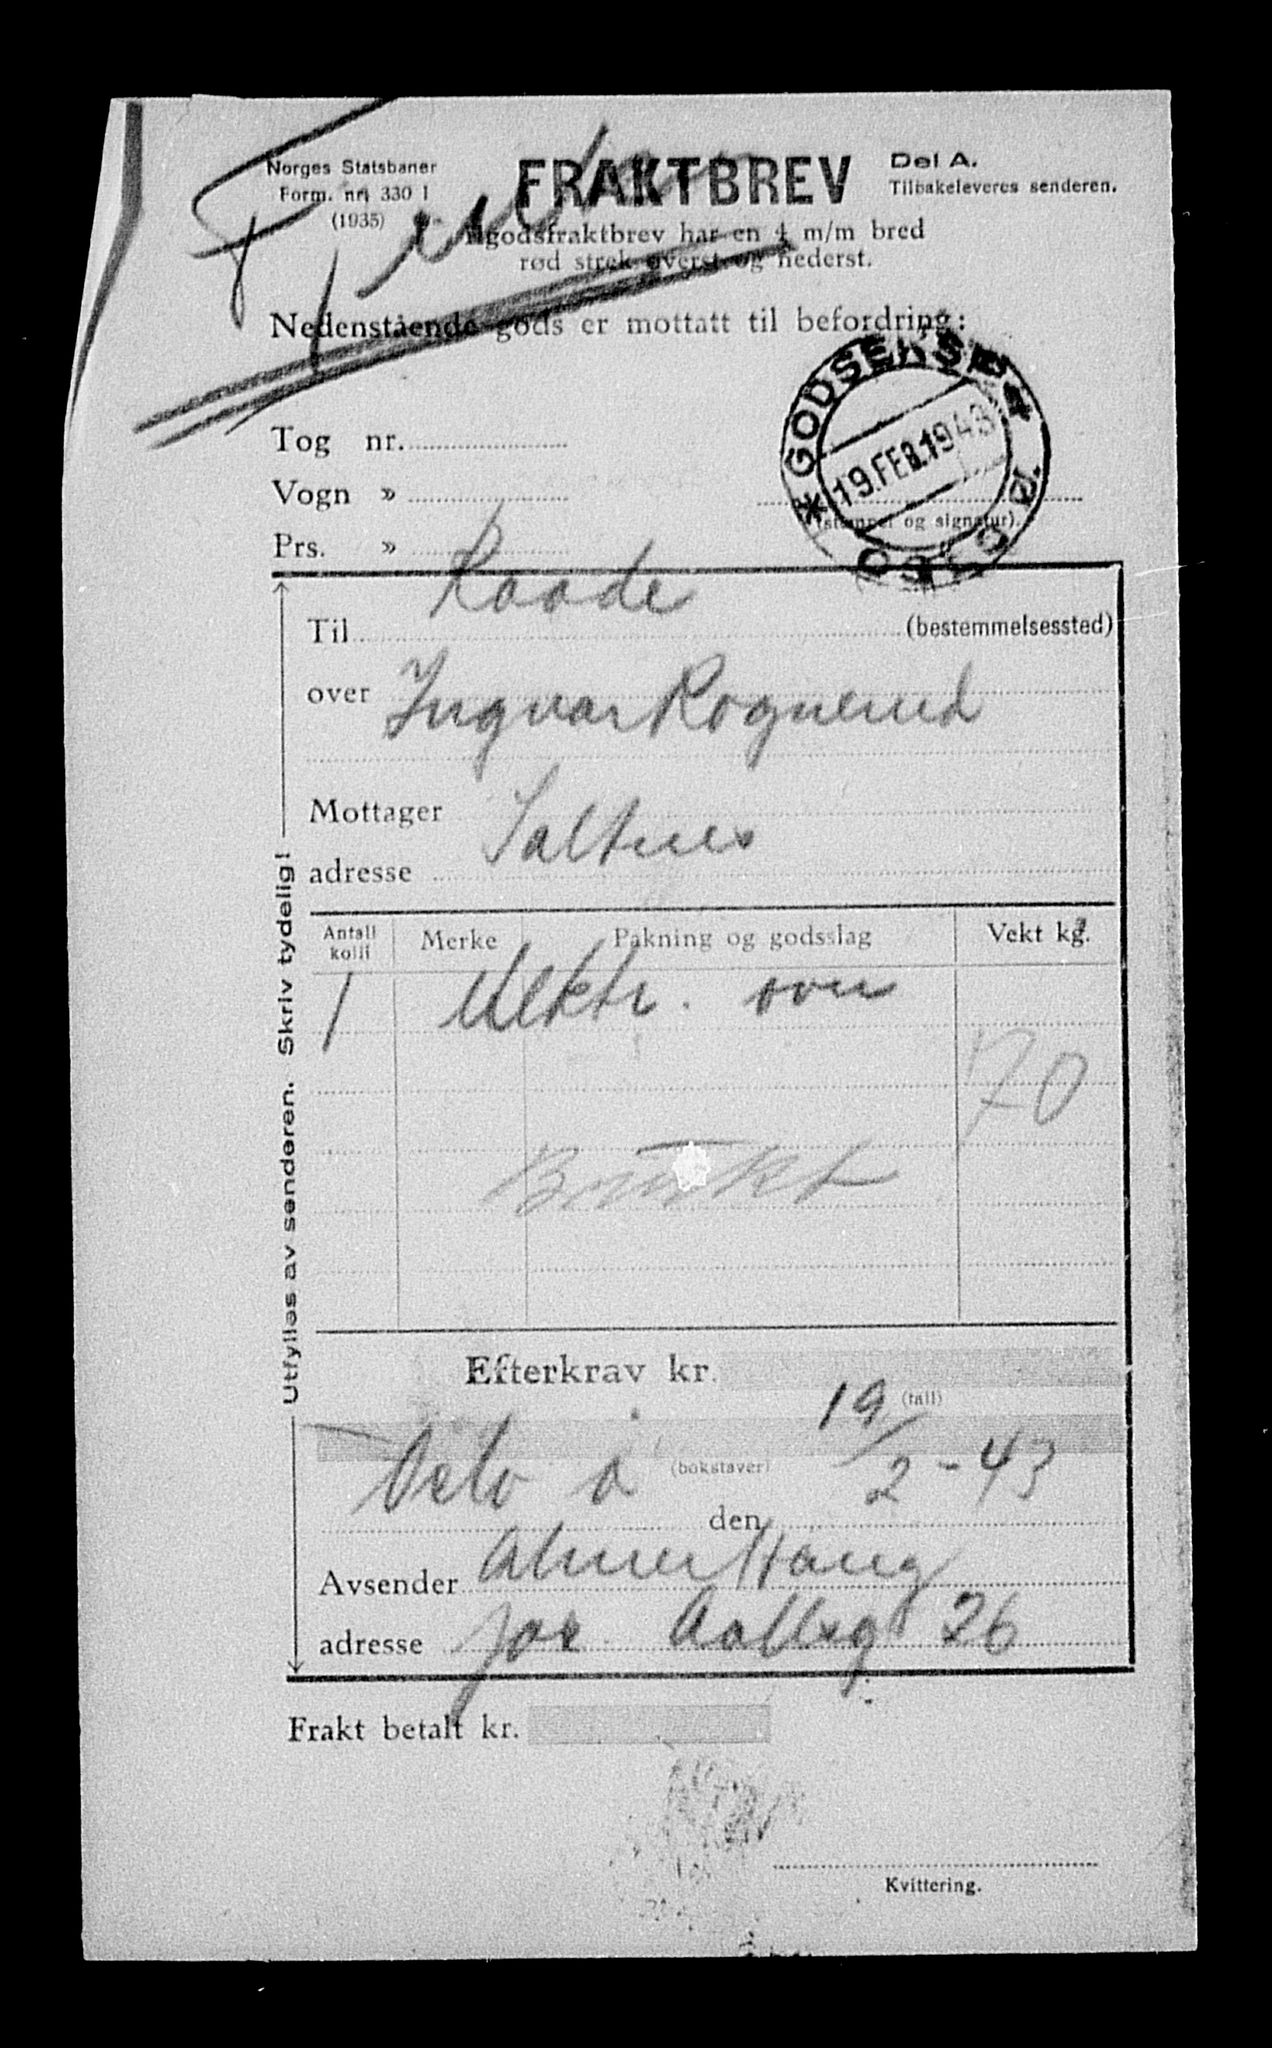 Norges Statsbaner
Form. nr. 330 1
(1935)
FRAKTBREV
Del A.
Tilbakeleveres senderen.
Ilgodsfraktbrev har en 4 m/m bred
rød strek øverst og nederst.
Nedenstående gods er mottatt til befordring:
Tog nr.
Vogn »
Prs. »
* GODSEKSP
OSLO Ø.
19.FEB.1943
(stempel og signatur).
Til Raade (bestemmelsessted)
over Ingvar Rognerud
Mottager
adresse Saltnes
Antall kolli Merke Pakning og godsslag Vekt kg.
1 Elektr. ovn
70
Brukt
Utfylles av senderen. Skriv tydelig!
Efterkrav kr.
(tall)
(bokstaver)
Oslo ø den 19/2-43
Avsender Almer Haug
adresse Jac. Aallsg 26
Frakt betalt kr.
Kvittering.